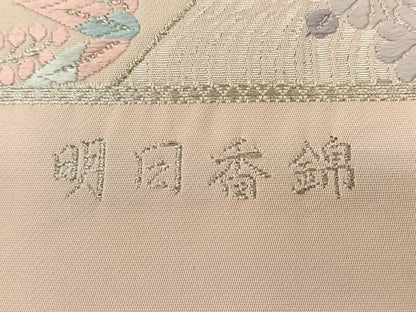 明日香錦